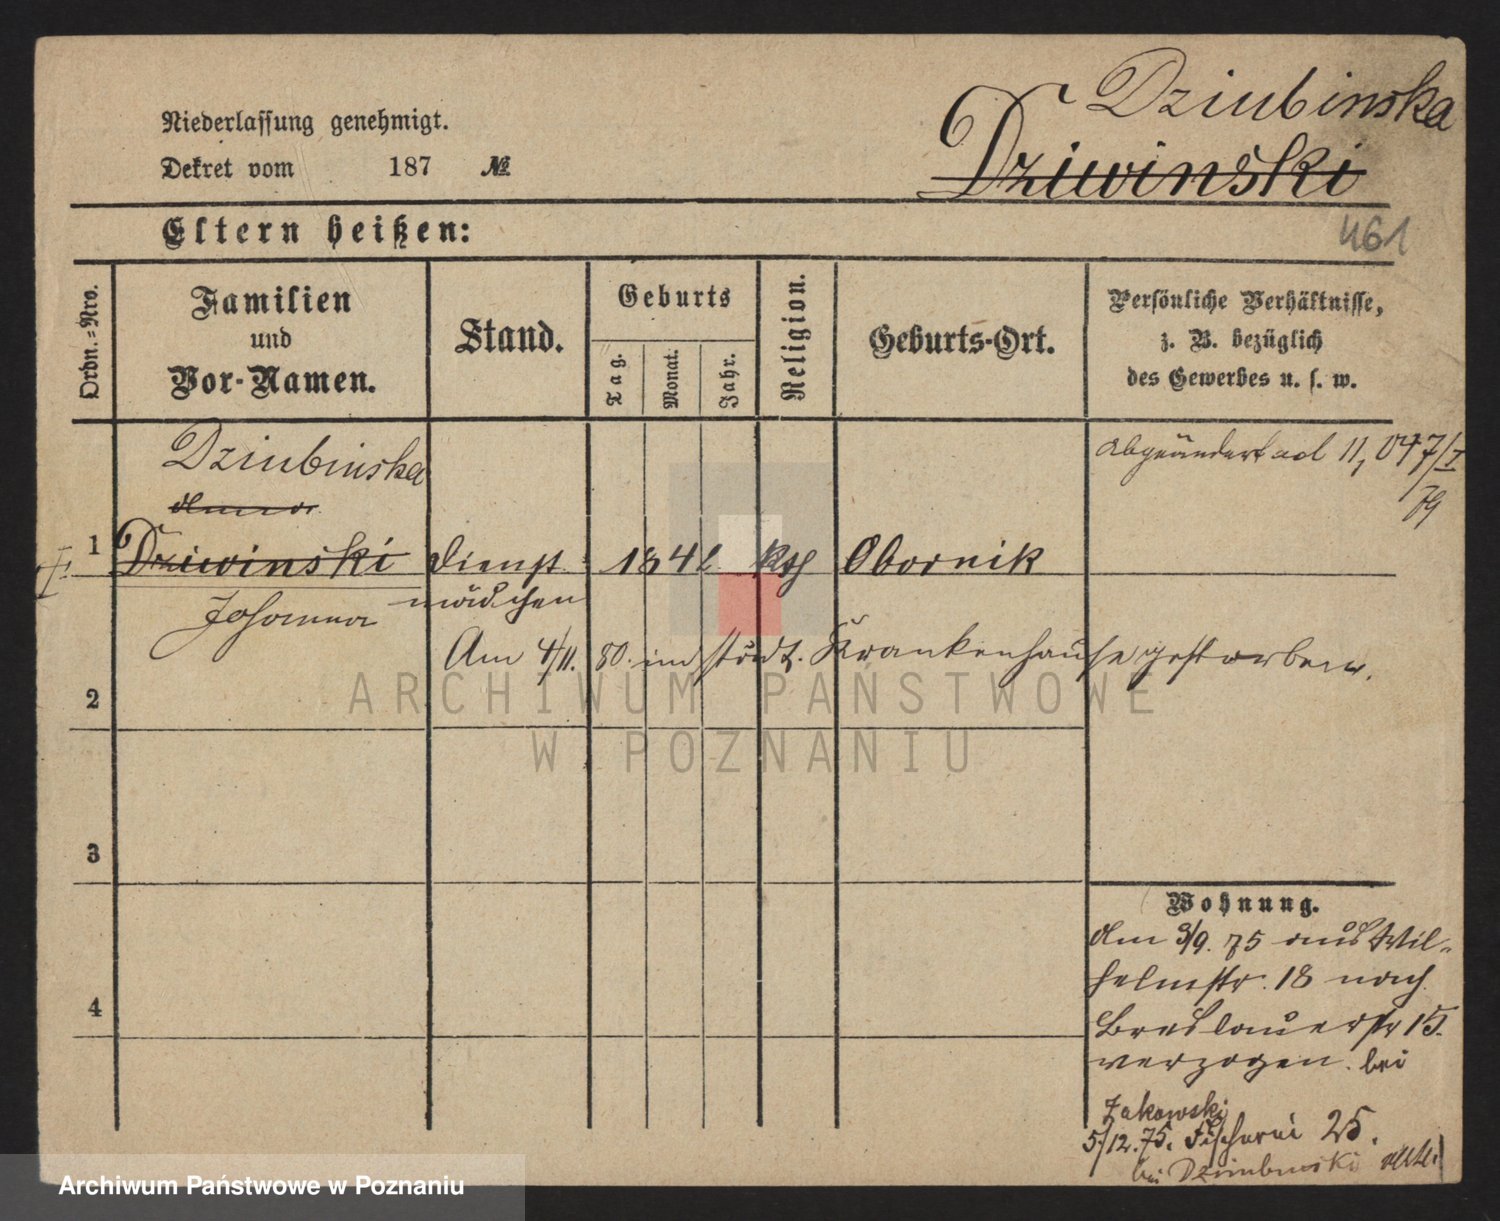 Dziubinska
Niederlassung genehmigt.
Dekret vom 187 №
Dziwinski
Eltern heißen:
461
Ordn.-Nro.
Familien
und
Vor-Namen.
Stand.
Geburts
Tag.
Monat.
Jahr.
Religion.
Geburts-Ort.
Persönliche Verhältnisse,
z. B. bezüglich
des Gewerbes u. s. w.
Dziubinska
abgeändert ad 11,047/I
79
1 Dziwinski Dienst 184 Obornik
Johanna mädchen
Am 4/11. 80. im städt. Krankenhause gestorben.
2
3
4
Wohnung.
Am 3/9. 75 aus Wil-
helmstr. 18 nach
Breslauerstr 15.
verzogen. bei
Zakowski
5/12. 75. Fischerei 25.
bei Dziubinski
ARCHIWUM PAŃSTWOWE
W POZNANIU
Archiwum Państwowe w Poznaniu